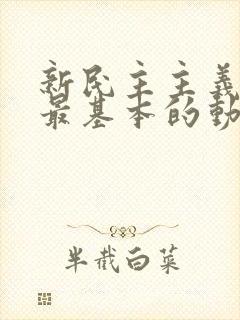 新民主主義
最基本的動
半截白菜